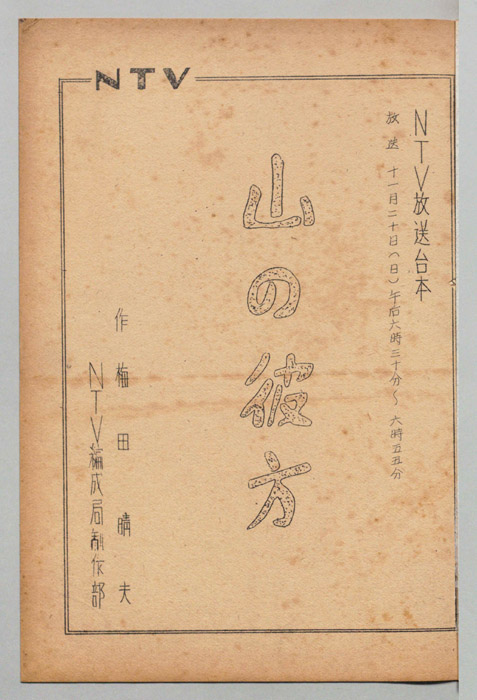 NTV
NTV放送台本
放送 十一月二十日(日)午后六時三十分~六時五五分
山の彼方
作 梅田晴夫
NTV編成局制作部